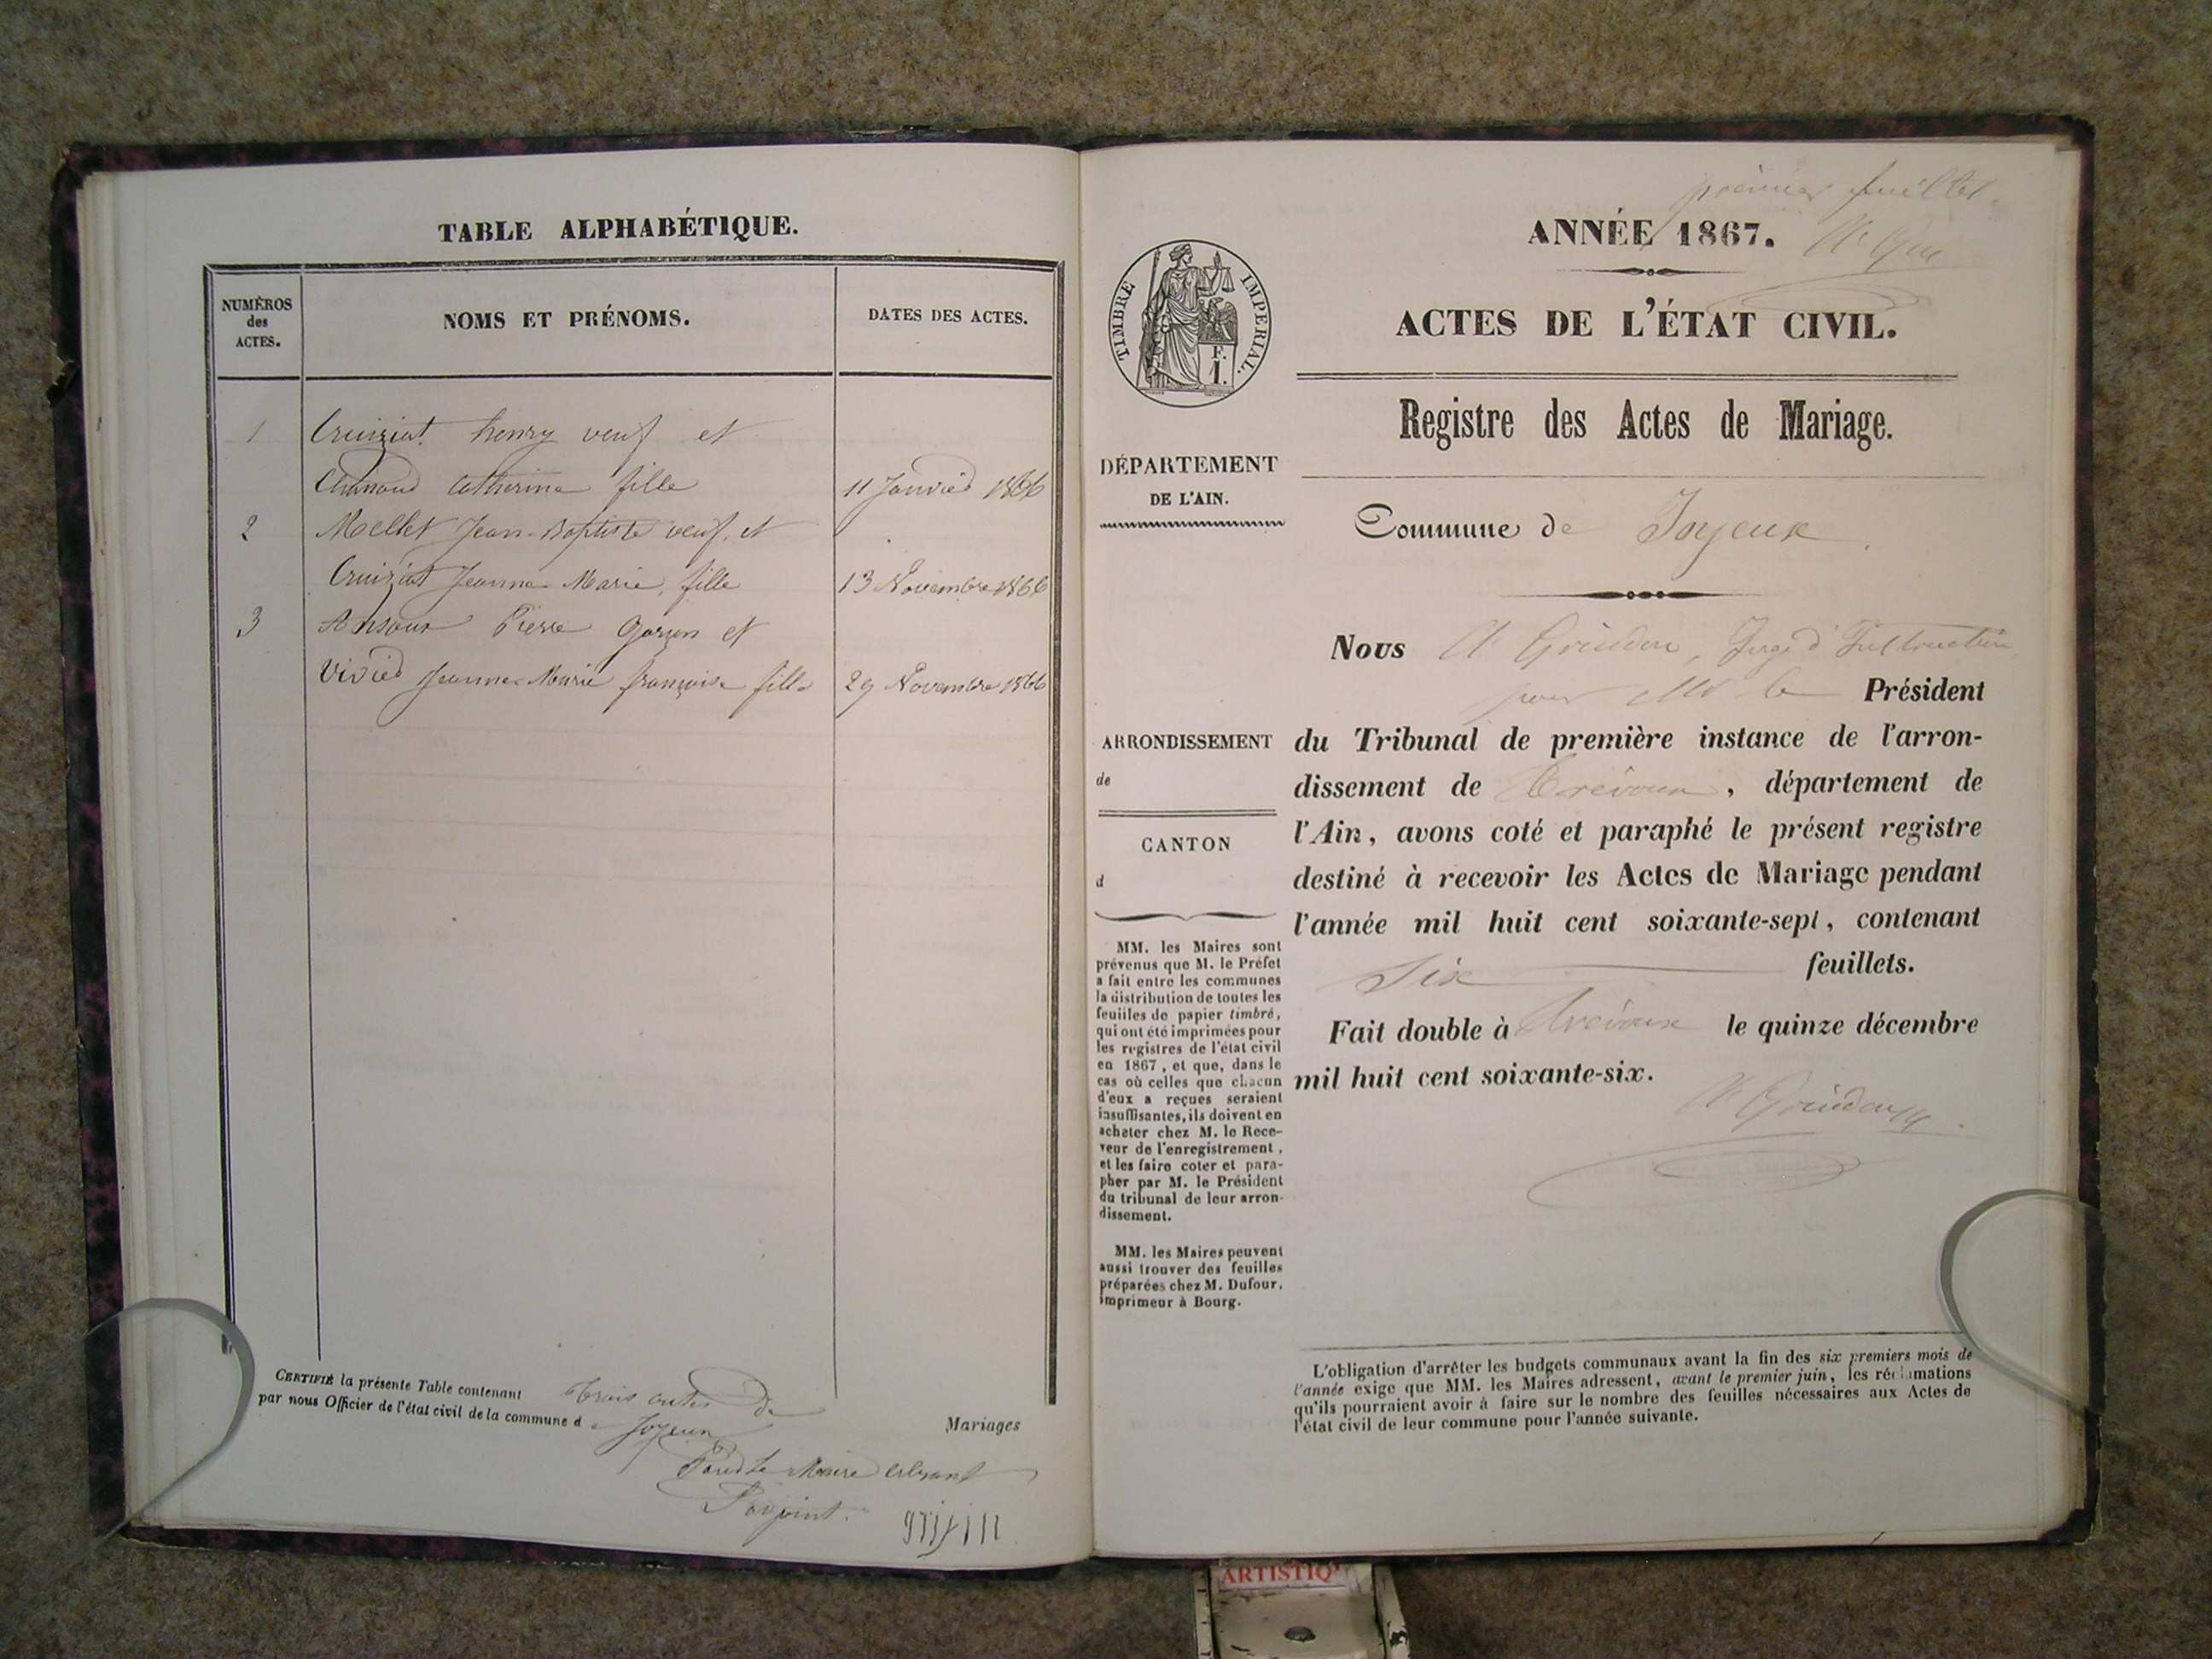 TABLE ALPHABÉTIQUE.
NUMÉROS
des
ACTES.
NOMS ET PRÉNOMS.
DATES DES ACTES.
1 Cruiziat henry veuf et
Chanoud Catherine fille 11 Janvier 1866
2 Mellet Jean-Baptiste veuf, et
Cruiziat Jeanne Marie, fille 13 Novembre 1866
3 Pierre Garçon et
Jeanne-Marie françoise fille 29 Novembre 1866
CERTIFIÉ la présente Table contenant trois actes de Mariages
par nous Officier de l'état civil de la commune de Joyeux
Pour le Maire absent
l'adjoint.
premier feuillet.
ANNÉE 1867.
ACTES DE L'ÉTAT CIVIL.
TIMBRE IMPERIAL.
F.
1.
Registre des Actes de Mariage.
DÉPARTEMENT
DE L'AIN.
Commune de Joyeux.
Nous Grindon, Juge d'Instruction
pour Mr le Président
ARRONDISSEMENT
de
CANTON
d
du Tribunal de première instance de l'arron-
dissement de Trévoux, département de
l'Ain, avons coté et paraphé le présent registre
destiné à recevoir les Actes de Mariage pendant
l'année mil huit cent soixante-sept, contenant
Six feuillets.
Fait double à Trévoux le quinze décembre
mil huit cent soixante-six.
Grindon
MM. les Maires sont
prévenus que M. le Préfet
a fait entre les communes
la distribution de toutes les
feuilles de papier timbré,
qui ont été imprimées pour
les registres de l'état civil
en 1867, et que, dans le
cas où celles que chacun
d'eux a reçues seraient
insuffisantes, ils doivent en
acheter chez M. le Rece-
veur de l'enregistrement,
et les faire coter et para-
pher par M. le Président
du tribunal de leur arron-
dissement.
MM. les Maires peuvent
aussi trouver des feuilles
préparées chez M. Dufour,
imprimeur à Bourg.
L'obligation d'arrêter les budgets communaux avant la fin des six premiers mois de
l'année exige que MM. les Maires adressent, avant le premier juin, les réclamations
qu'ils pourraient avoir à faire sur le nombre des feuilles nécessaires aux Actes de
l'état civil de leur commune pour l'année suivante.
ARTISTIQ